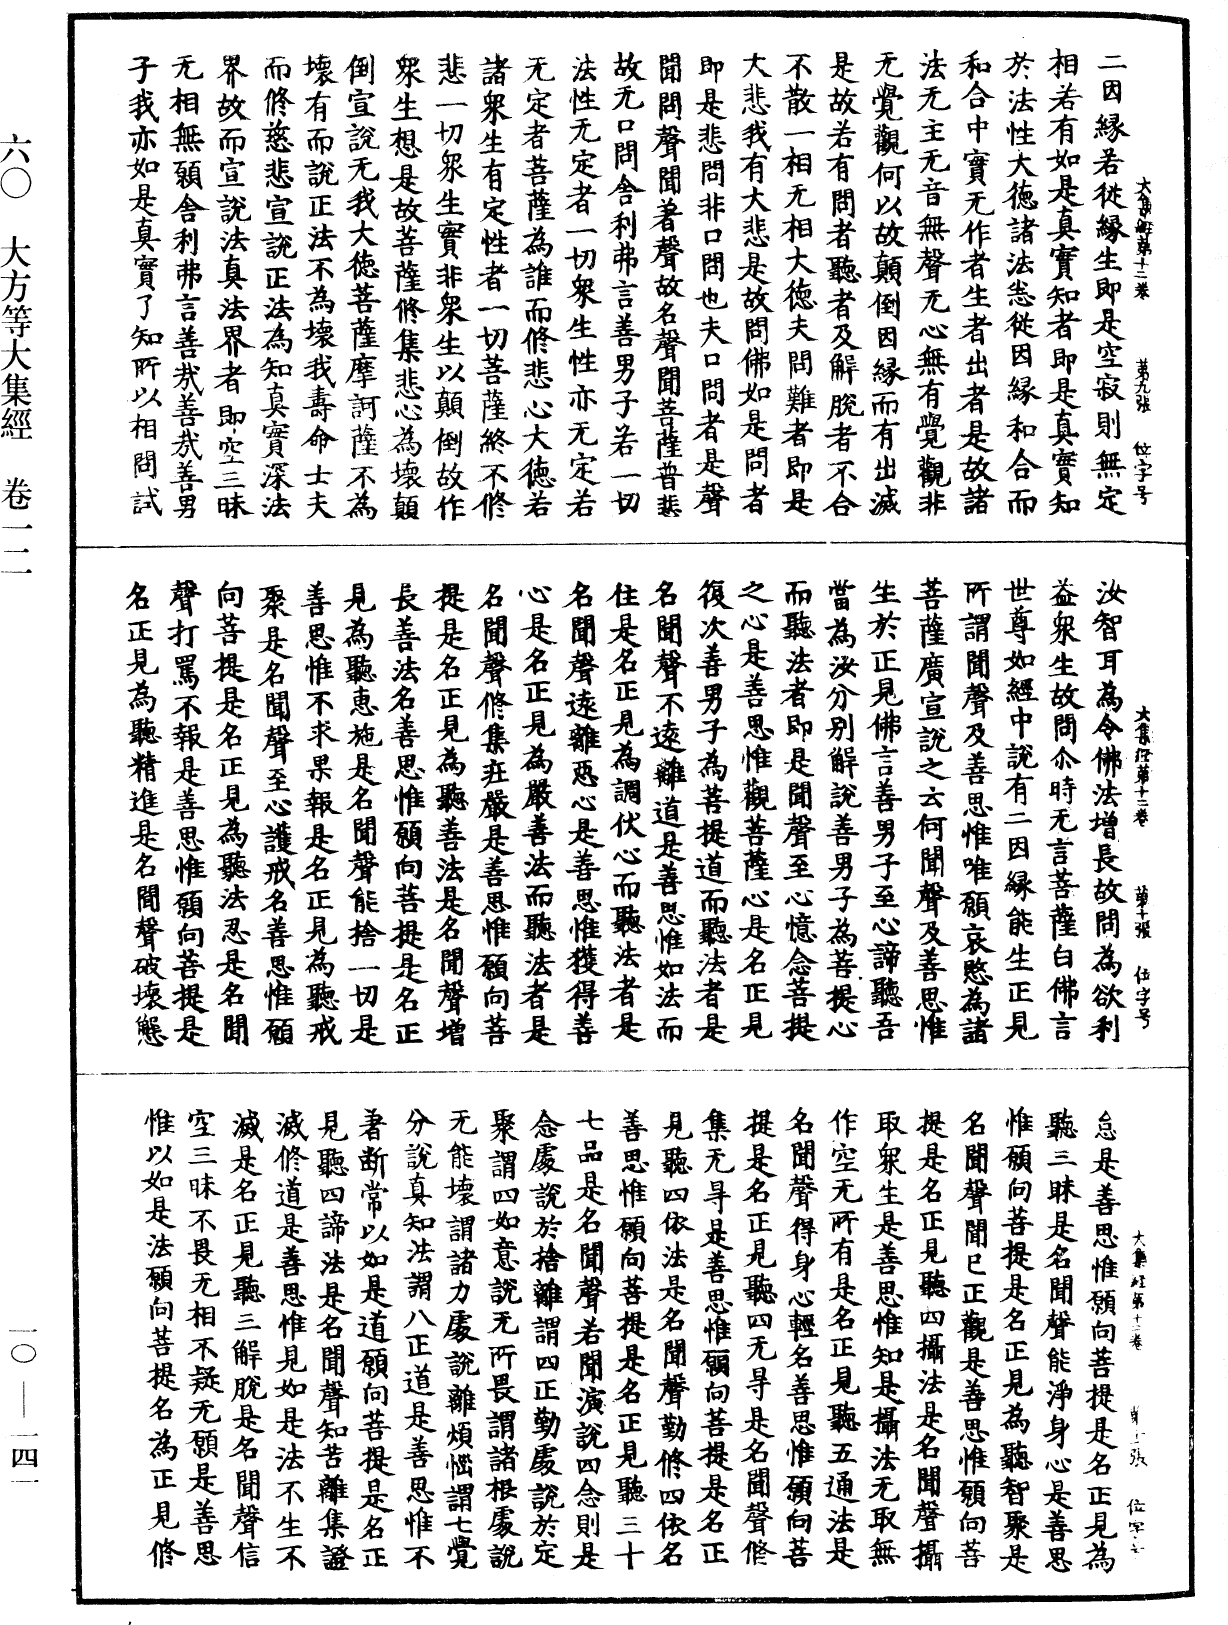 大集經第十二卷　第九張　位字号
二因緣若從緣生即是空寂則無定
相若有如是真實知者即是真實知
於法性大德諸法悉從因緣和合而
和合中實无作者生者出者是故諸
法无主无音無聲无心無有覺觀非
无覺觀何以故顛倒因緣而有出滅
是故若有問者聽者及解脫者不合
不散一相无相大德夫問難者即是
大悲我有大悲是故問佛如是問者
即是悲問非口問也夫口問者是聲
聞問聲聞著聲故名聲聞菩薩普悲
故无口問舍利弗言善男子若一切
法性无定者一切衆生性亦无定若
无定者菩薩為誰而修悲心大德若
諸衆生有定性者一切菩薩終不修
悲一切衆生實非衆生以顛倒故作
衆生想是故菩薩修集悲心為壞顛
倒宣說无我大德菩薩摩訶薩不為
壞有而說正法不為壞我壽命士夫
而修慈悲宣說正法為知真實深法
界故而宣說法真法界者即空三昧
无相無願舍利弗言善哉善哉善男
子我亦如是真實了知所以相問試
大集經第十二卷　第十張　位字号
汝智耳為令佛法增長故問為欲利
益衆生故問尒時无言菩薩白佛言
世尊如經中說有二因緣能生正見
所謂聞聲及善思惟唯願哀愍為諸
菩薩廣宣說之云何聞聲及善思惟
生於正見佛言善男子至心諦聽吾
當為汝分別解說善男子為菩提心
而聽法者即是聞聲至心憶念菩提
之心是善思惟觀菩薩心是名正見
復次善男子為菩提道而聽法者是
名聞聲不遠離道是善思惟如法而
住是名正見為調伏心而聽法者是
名聞聲遠離惡心是善思惟獲得善
心是名正見為嚴善法而聽法者是
名聞聲修集莊嚴是善思惟願向菩
提是名正見為聽善法是名聞聲增
長善法名善思惟願向菩提是名正
見為聽惠施是名聞聲能捨一切是
善思惟不求果報是名正見為聽戒
聚是名聞聲至心護戒名善思惟願
向菩提是名正見為聽法忍是名聞
聲打罵不報是善思惟願向菩提是
名正見為聽精進是名聞聲破壞懈
大集經第十二卷　第十一張　位字号
怠是善思惟願向菩提是名正見為
聽三昧是名聞聲能淨身心是善思
惟願向菩提是名正見為聽智聚是
名聞聲聞已正觀是善思惟願向菩
提是名正見聽四攝法是名聞聲攝
取衆生是善思惟知是攝法无取無
作空无所有是名正見聽五通法是
名聞聲得身心輕名善思惟願向菩
提是名正見聽四无㝵是名聞聲修
集无㝵是善思惟願向菩提是名正
見聽四依法是名聞聲勤修四依名
善思惟願向菩提是名正見聽三十
七品是名聞聲若聞演說四念則是
念處說於捨離謂四正勤處說於定
聚謂四如意說无所畏謂諸根處說
无能壞謂諸力處說離煩惱謂七覺
分說真知法謂八正道是善思惟不
著斷常以如是道願向菩提是名正
見聽四諦法是名聞聲知苦離集證
滅修道是善思惟見如是法不生不
滅是名正見聽三解脫是名聞聲信
空三昧不畏无相不疑无願是善思
惟以如是法願向菩提名為正見修
六〇　大方等大集經　卷一二
一〇——一四一